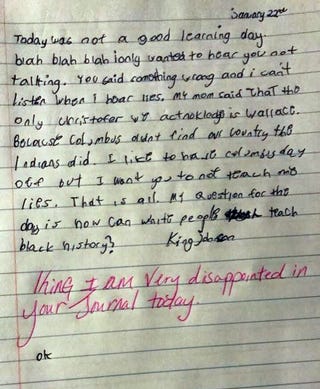 January 22nd
Today was not a good learning day.
Blah blah blah i only wanted to hear you not
talking. You said something wrong and i can't
listen when I hear lies. My mom said That the
only christofer we acknoladg is Wallace.
Because Columbus didnt find our country the
Indians did. I like to have columbus day
off but I want you to not teach me
lies. That is all. My question for the
day is how can white people teach
black history? King Johnson
King I am very disappointed in
your Journal today.
ok